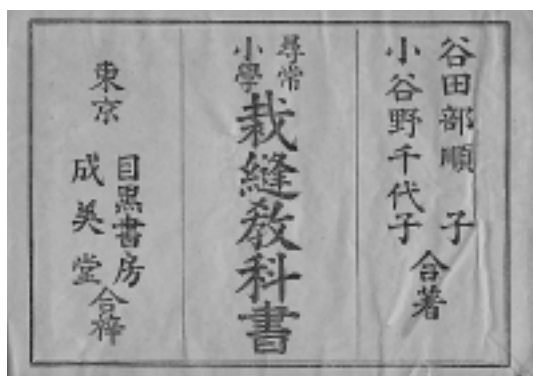 谷田部順子
小谷野千代子
合著
尋常
小學
裁縫教科書
東京
目黒書房
成美堂
合梓